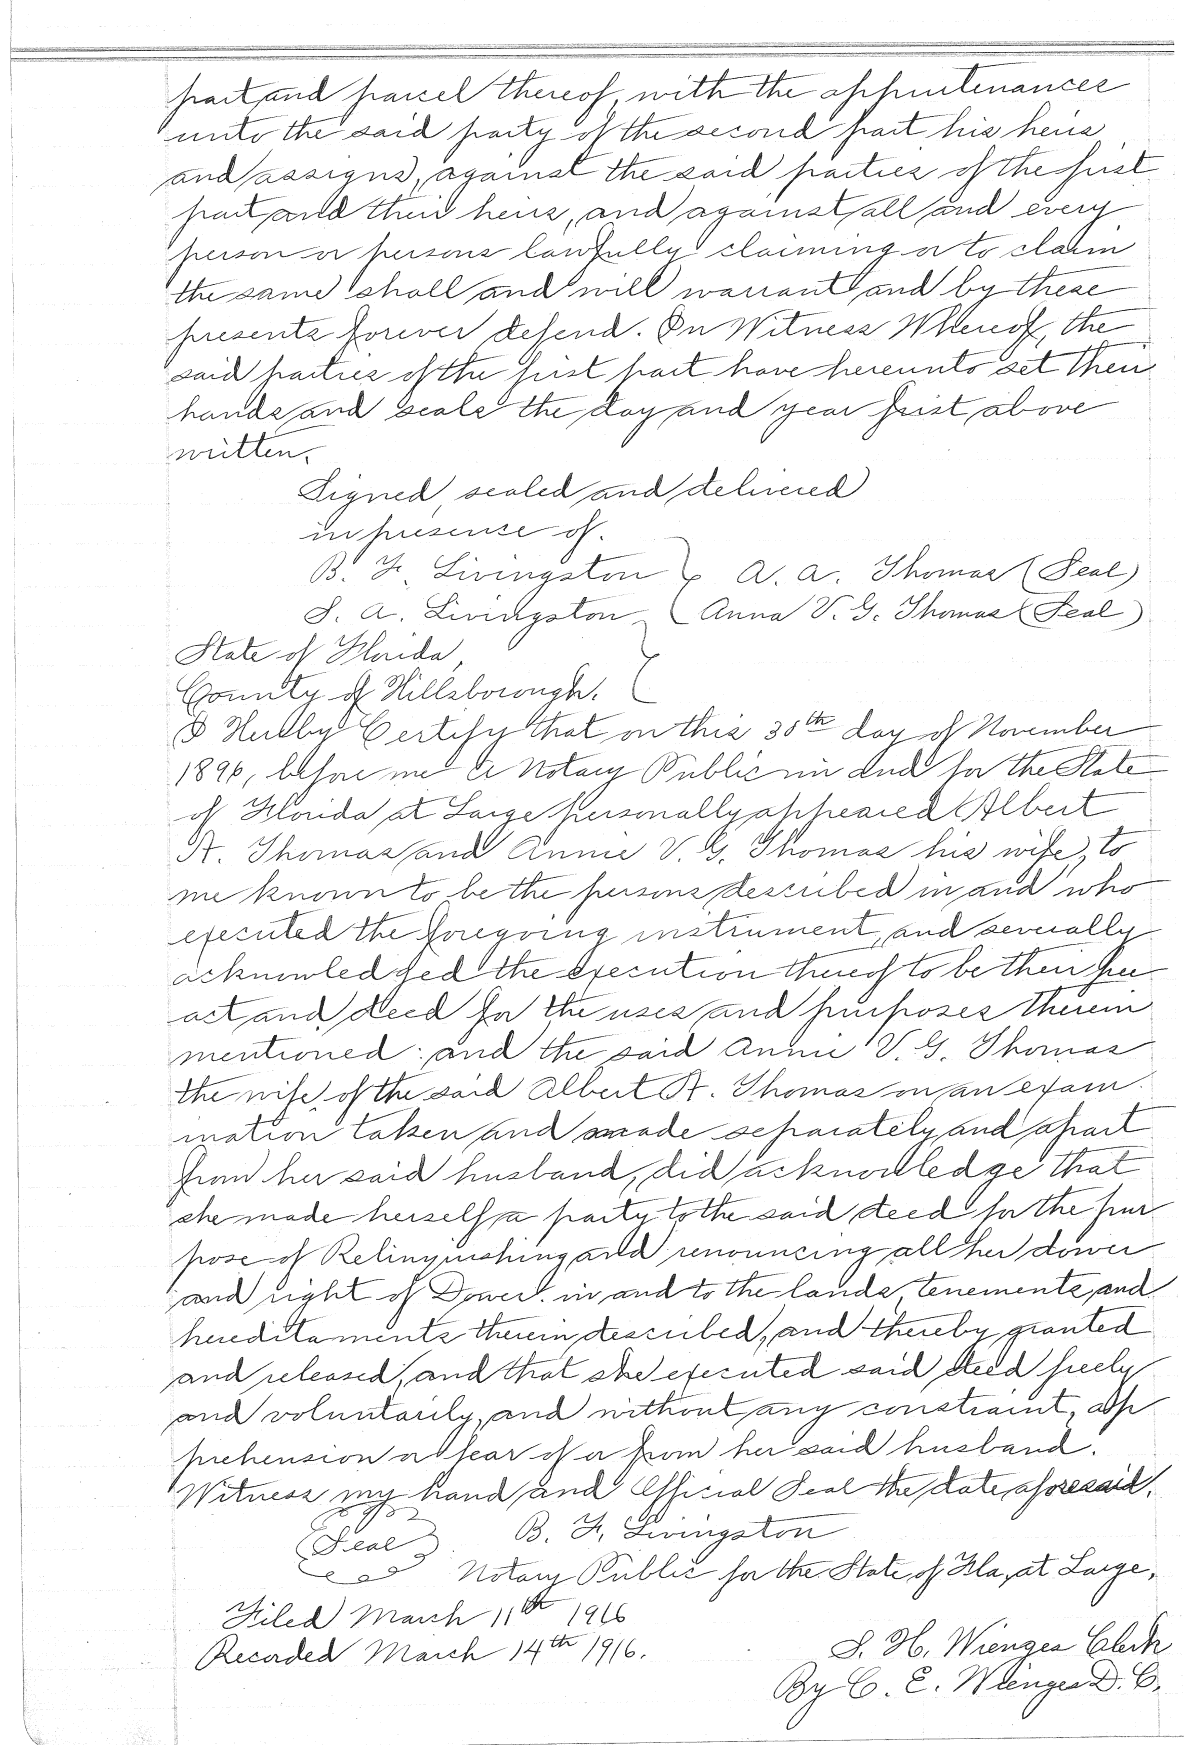 part and parcel thereof, with the appurtenances
unto the said party of the second part his heirs
and assigns, against the said parties of the first
part and their heirs, and against all and every
person or persons lawfully claiming or to claim
the same shall and will warrant and by these
presents forever defend. In Witness Whereof, the
said parties of the first part have hereunto set their
hands and seals the day and year first above
written.
Signed, sealed and delivered
in presence of.
B. F. Livingston } A. A. Thomas (Seal)
S. A. Livingston { Anna V. G. Thomas (Seal)
State of Florida,
County of Hillsborough.
I Hereby Certify that on this 30th day of November
1896, before me a Notary Public in and for the State
of Florida at Large personally appeared Albert
A. Thomas and Annie V. G. Thomas his wife, to
me known to be the persons described in and who
executed the foregoing instrument, and severally
acknowledged the execution thereof to be their free
act and deed for the uses and purposes therein
mentioned; and the said Annie V. G. Thomas
the wife of the said Albert A. Thomas on an exam
ination taken and made separately and apart
from her said husband, did acknowledge that
she made herself a party to the said deed for the pur
pose of Relinquishing and renouncing all her dower
and right of Dower. in and to the lands, tenements, and
hereditaments therein described, and thereby granted
and released, and that she executed said deed freely
and voluntarily, and without any constraint, ap
prehension or fear of or from her said husband.
Witness my hand and Official Seal the date aforesaid.
(Seal) B. F. Livingston
Notary Public for the State of Fla, at Large.
Filed March 11th 1916
Recorded March 14th 1916.
S. H. Wienges Clerk
By C. E. Wienges D. C.